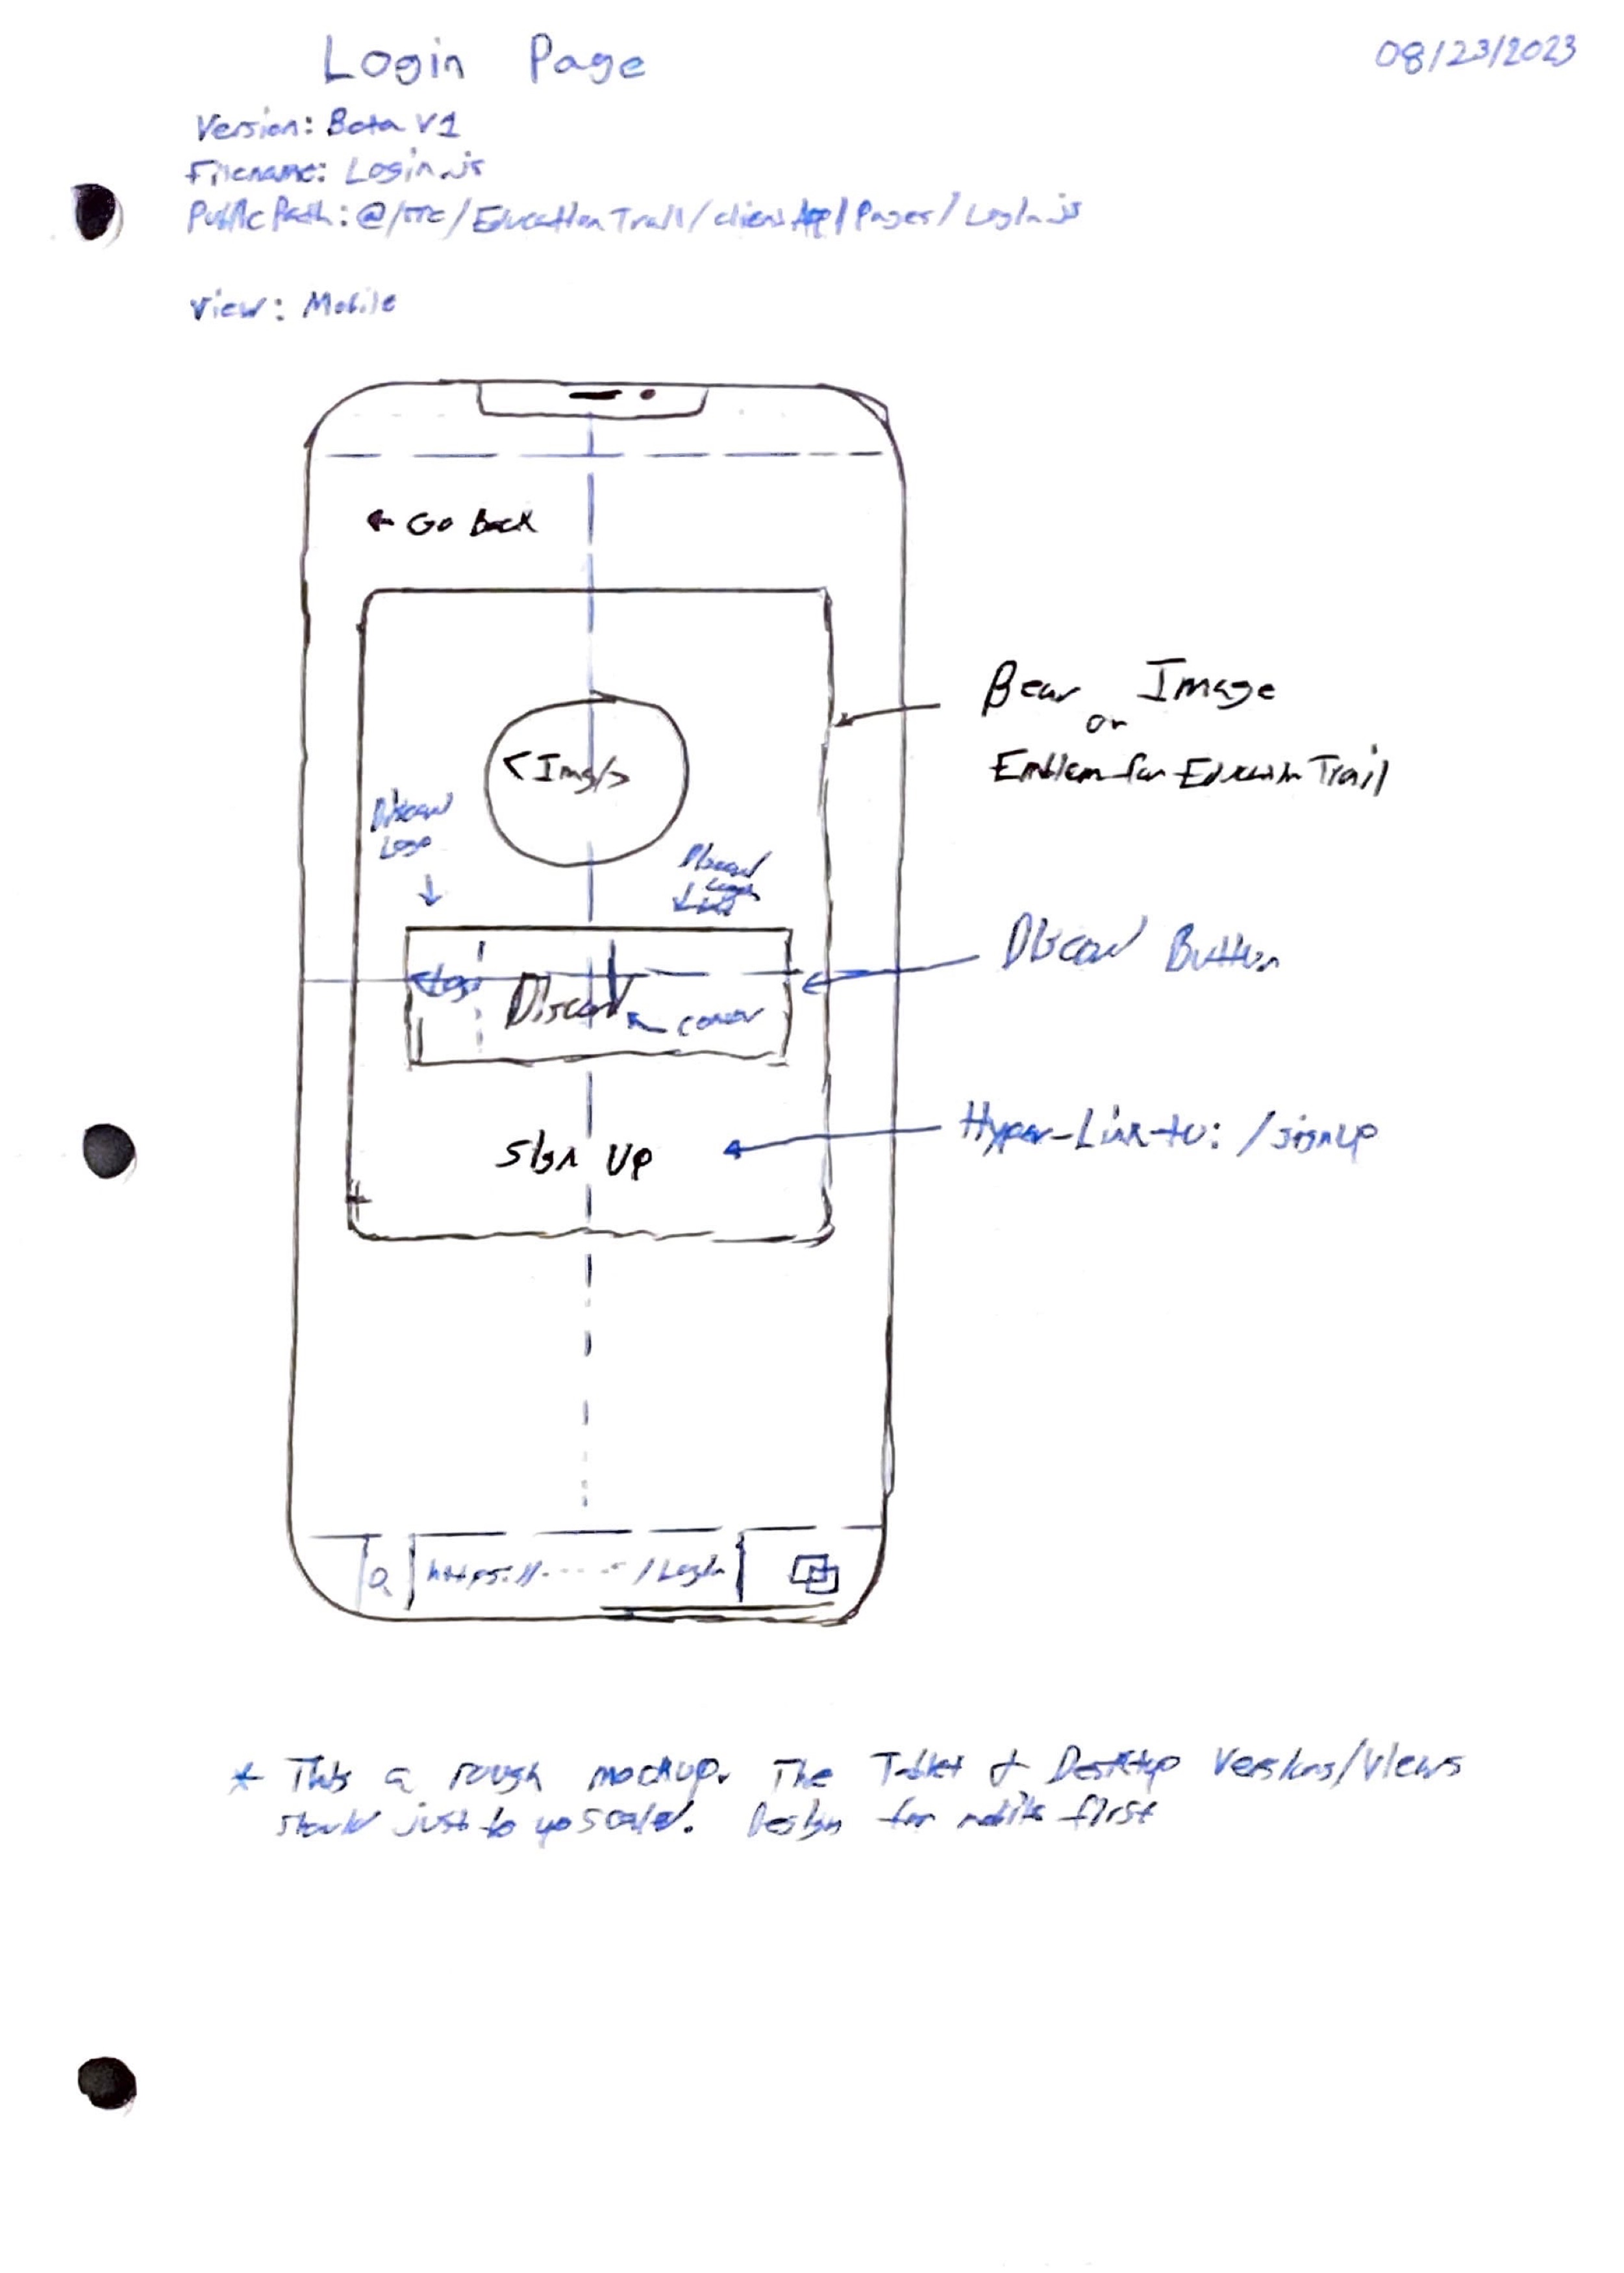 Login Page
08/23/2023
Version: Beta V1
Filename: Login.js
Public Path: @/src/EducationTrail/clientApp/Pages/Login.js
View: Mobile
← Go back
Bear Image
or
Emblem for Education Trail
<Img/>
Discord
Logo
Discord
Discord Button
Discord
center
Sign Up
Hyper-Link-to: /signup
https://...../Login
* This a rough mockup. The Tablet & Desktop Versions/Views
should just be upscaled. Design for mobile first